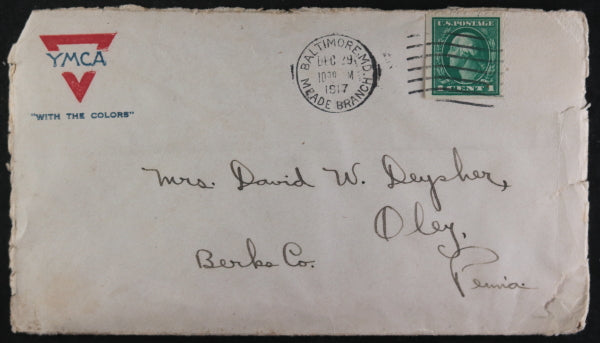 YMCA
"WITH THE COLORS"
BALTIMORE, MD.
DEC 29
1917
MEADE BRANCH
U.S. POSTAGE
1 CENT 1
Mrs. David W. Deysher,
Oley,
Berks Co.
Penna.